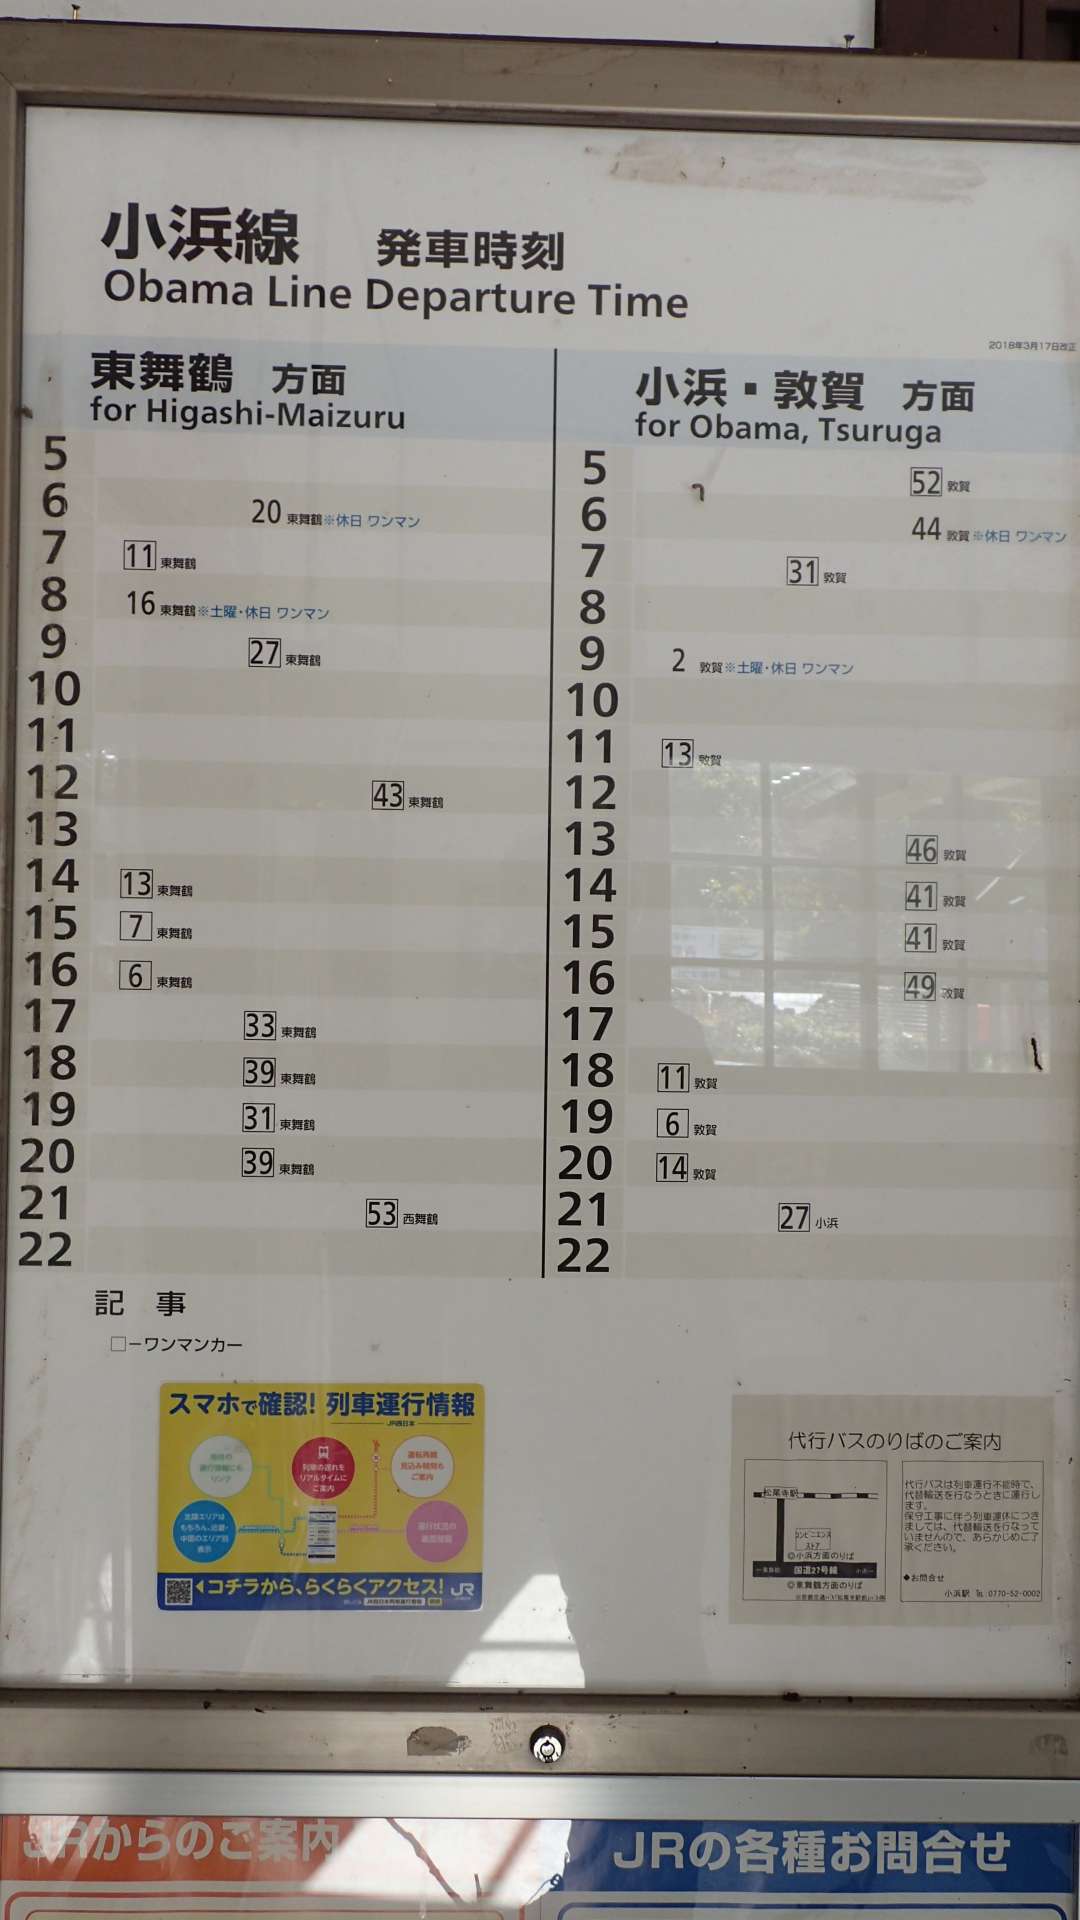 小浜線 発車時刻
Obama Line Departure Time
2018年3月17日改正
東舞鶴 方面
for Higashi-Maizuru
5
6 20 東舞鶴※休日 ワンマン
7 11 東舞鶴
8 16 東舞鶴※土曜・休日 ワンマン
9 27 東舞鶴
10
11
12 43 東舞鶴
13
14 13 東舞鶴
15 7 東舞鶴
16 6 東舞鶴
17 33 東舞鶴
18 39 東舞鶴
19 31 東舞鶴
20 39 東舞鶴
21 53 西舞鶴
22
小浜・敦賀 方面
for Obama, Tsuruga
5 52 敦賀
6 44 敦賀※休日 ワンマン
7 31 敦賀
8
9 2 敦賀※土曜・休日 ワンマン
10
11 13 敦賀
12
13 46 敦賀
14 41 敦賀
15 41 敦賀
16 49 敦賀
17
18 11 敦賀
19 6 敦賀
20 14 敦賀
21 27 小浜
22
記 事
□−ワンマンカー
スマホで確認! 列車運行情報
JR西日本
列車の遅れを
リアルタイムに
ご案内
運転再開
見込み時間も
ご案内
北陸エリアは
もちろん、近畿・
中国のエリア別
表示
コチラから、らくらくアクセス! JR
代行バスのりばのご案内
松尾寺駅
コンビニエンス
ストア
◎小浜方面のりば
国道27号線
◎東舞鶴方面のりば
代行バスは列車運行不能時で、
代替輸送を行なうときに運行し
ます。
保守工事に伴う列車運休につき
ましては、代替輸送を行なって
いませんので、あらかじめご了
承ください。
◆お問合せ
小浜駅 ℡ 0770-52-0002
JRからのご案内
JRの各種お問合せ